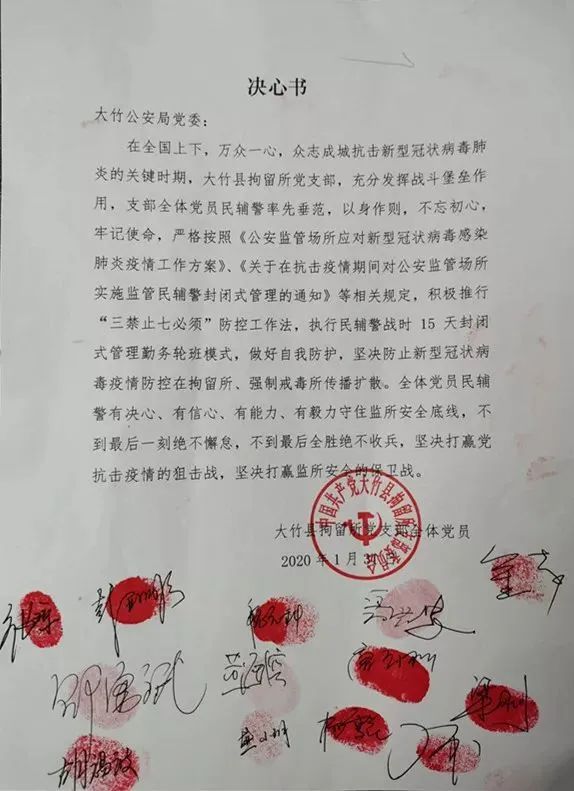 决心书
大竹公安局党委：
在全国上下，万众一心，众志成城抗击新型冠状病毒肺
炎的关键时期，大竹县拘留所党支部，充分发挥战斗堡垒作
用，支部全体党员民辅警率先垂范，以身作则，不忘初心，
牢记使命，严格按照《公安监管场所应对新型冠状病毒感染
肺炎疫情工作方案》、《关于在抗击疫情期间对公安监管场所
实施监管民辅警封闭式管理的通知》等相关规定，积极推行
“三禁止七必须”防控工作法，执行民辅警战时 15 天封闭
式管理勤务轮班模式，做好自我防护，坚决防止新型冠状病
毒疫情防控在拘留所、强制戒毒所传播扩散。全体党员民辅
警有决心、有信心、有能力、有毅力守住监所安全底线，不
到最后一刻绝不懈怠，不到最后全胜绝不收兵，坚决打赢党
抗击疫情的狙击战，坚决打赢监所安全的保卫战。
中国共产党大竹县拘留所支部委员会
大竹县拘留所党支部全体党员
2020 年 1 月 31 日